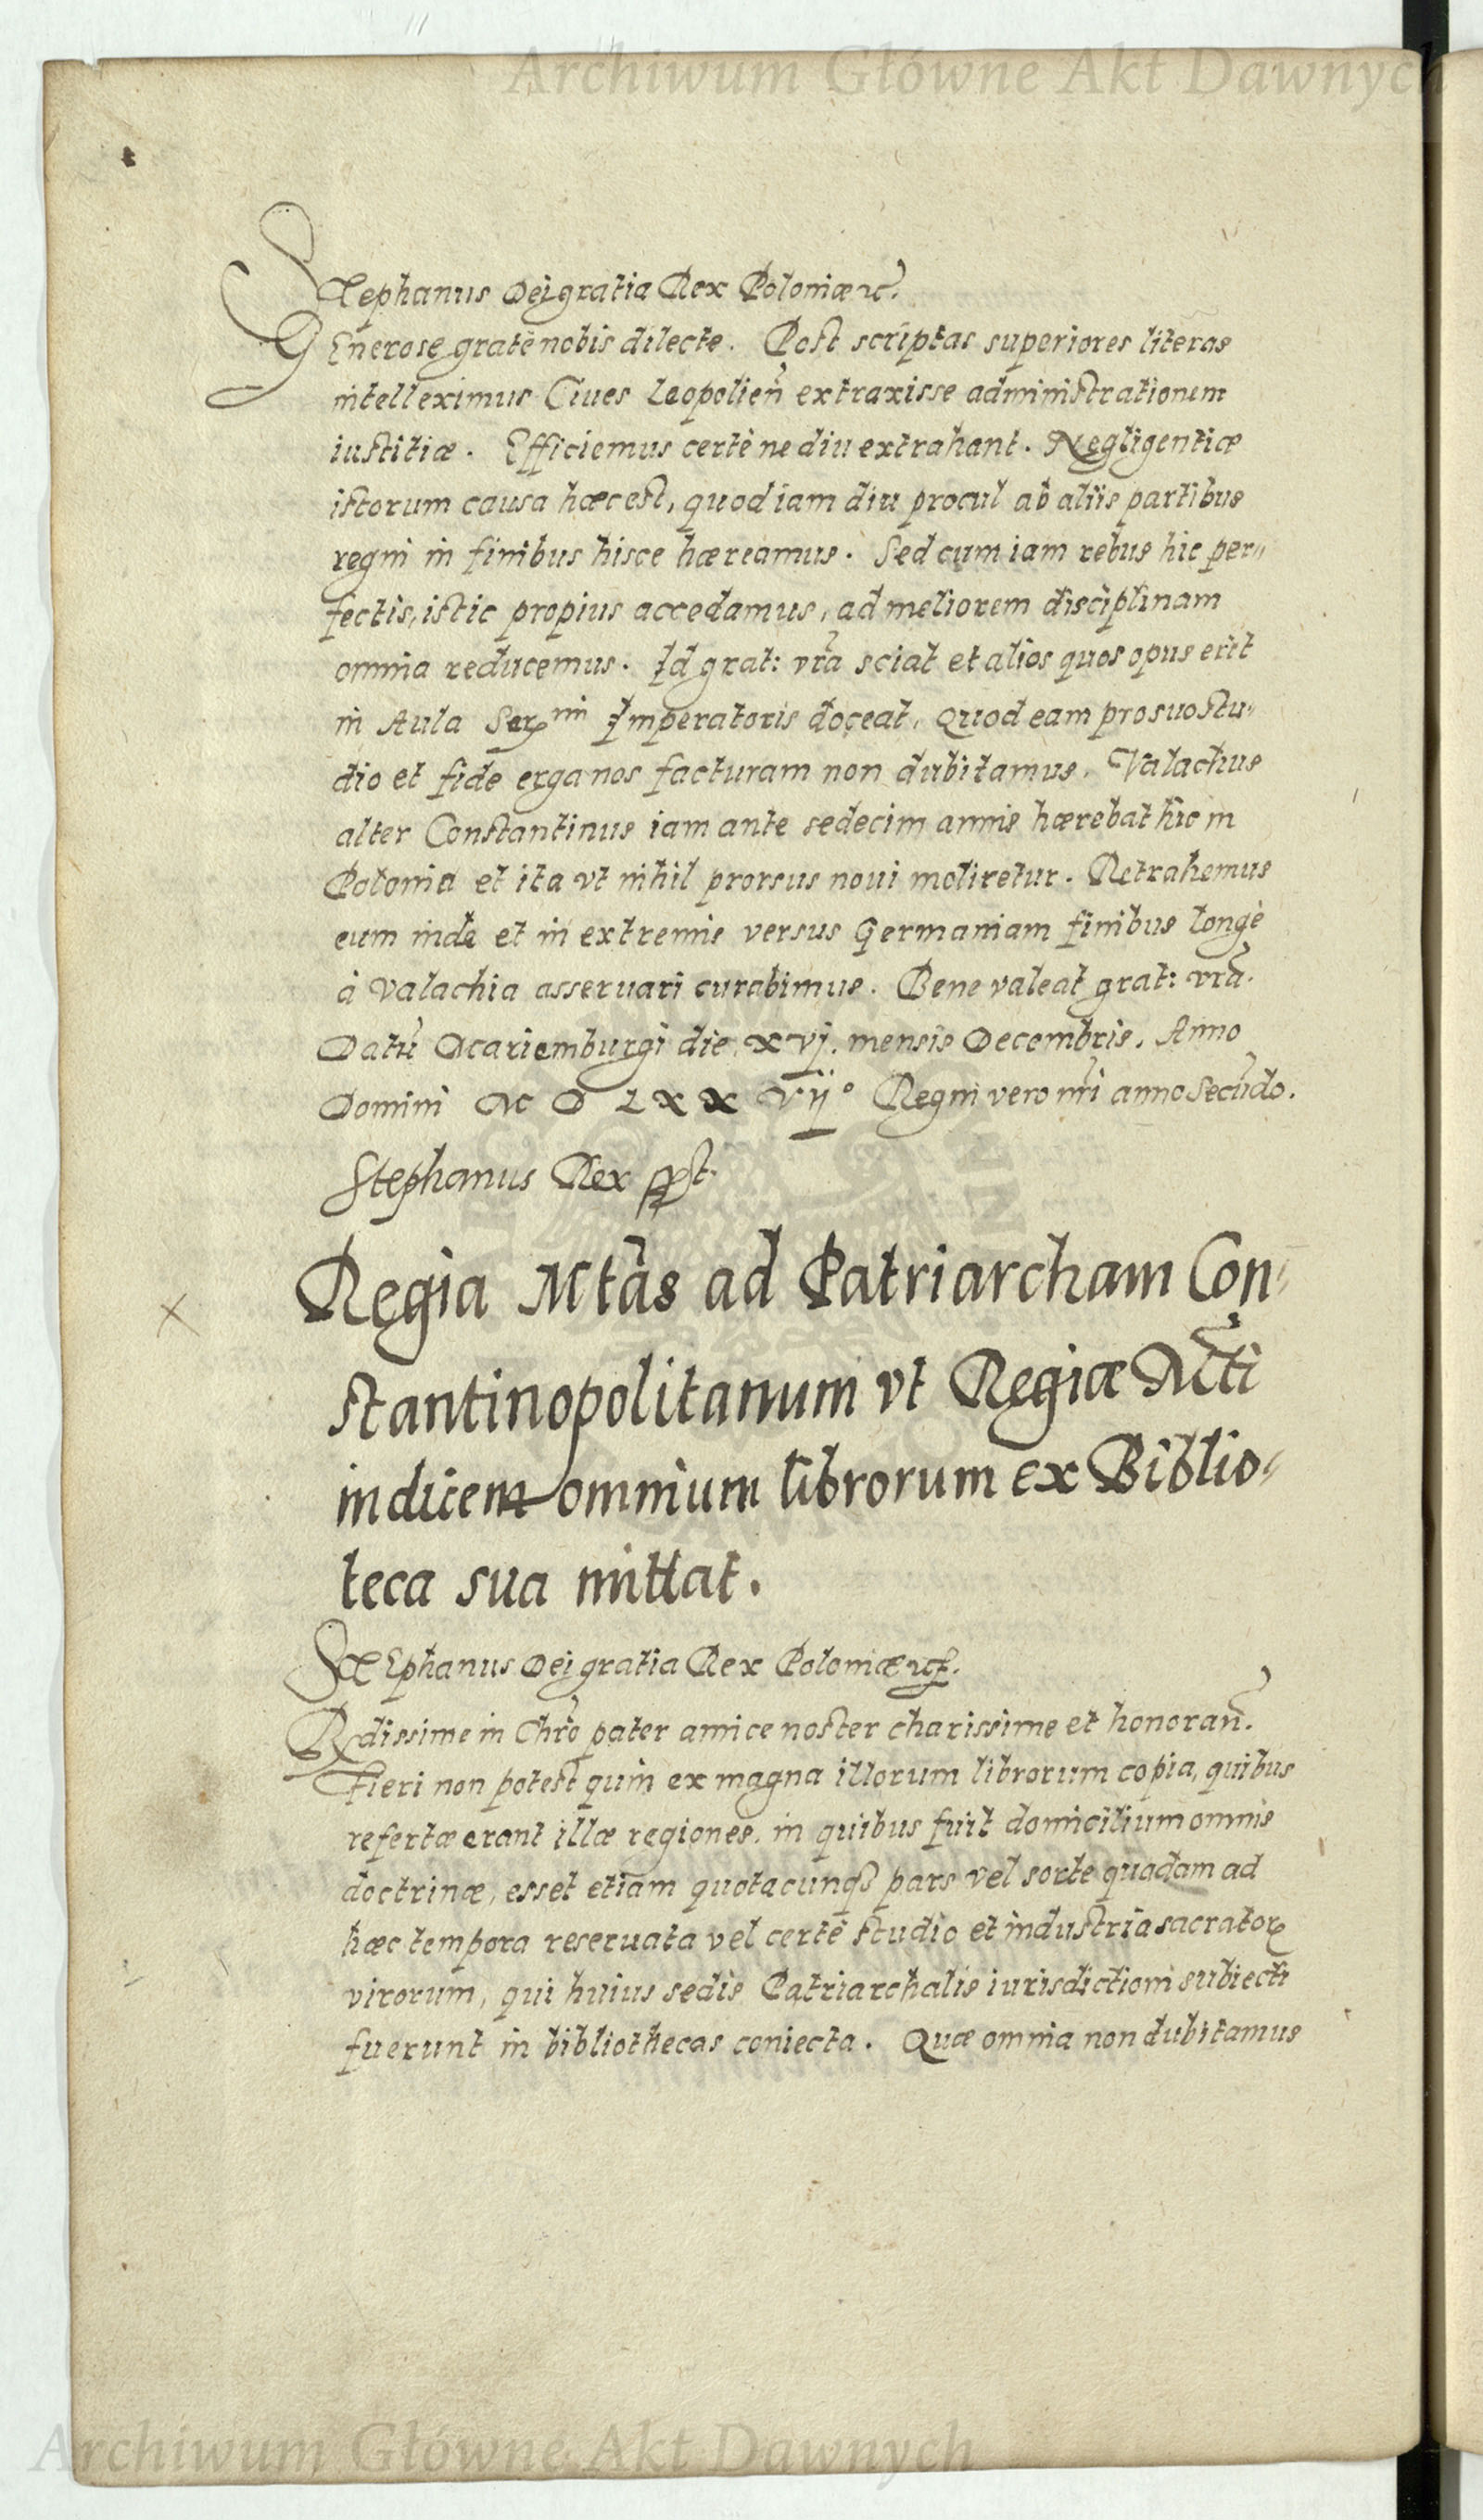 Archiwum Główne Akt Dawnych
Stephanus Dei gratia Rex Poloniæ &c.
Generose grate nobis dilecte. Post scriptas superiores literas
intelleximus Ciues Leopolien̄ extraxisse administrationem
iustitiæ. Efficiemus certè ne diu extrahant. Negligentiæ
istorum causa hæc est, quod iam diu procul ab aliis partibus
regni in finibus hisce hæreamus. Sed cum iam rebus hic per„
fectis, istic propius accedamus, ad meliorem disciplinam
omnia reducemus. Id grat: vr̄a sciat et alios quos opus erit
in Aula Ser^mi Imperatoris doceat, Quod eam pro suo stu„
dio et fide erga nos facturam non dubitamus. Valachus
alter Constantinus iam ante sedecim annis hærebat hic in
Polonia et ita vt nihil prorsus noui moliretur. Retrahemus
eum inde et in extremis versus Germaniam finibus longè
à Valachia asseruari curabimus. Bene valeat grat: vr̄a.
Datū Mariemburgi die xvj. mensis Decembris. Anno
Domini M D L x x vij° Regni vero nr̄i anno Secūdo.
Stephanus Rex sspt.
Regia Mtās ad Patriarcham Con„
stantinopolitanum vt Regiæ Mt̄i
indicem omnium librorum ex Biblio„
teca sua mittat.
Stephanus Dei gratia Rex Poloniæ &c.
Rdissime in Chrō pater amice noster charissime et honoran̄.
Fieri non potest quin ex magna illorum librorum copia, quibus
refertæ erant illæ regiones, in quibus fuit domicilium omnis
doctrinæ, esset etiam quotacunqȝ pars vel sorte quadam ad
hæc tempora reseruata vel certè studio et industria sacratorꝝ
virorum, qui huius sedis Patriarchalis iurisdictioni subiecti
fuerunt in bibliothecas coniecta. Quæ omnia non dubitamus
Archiwum Główne Akt Dawnych